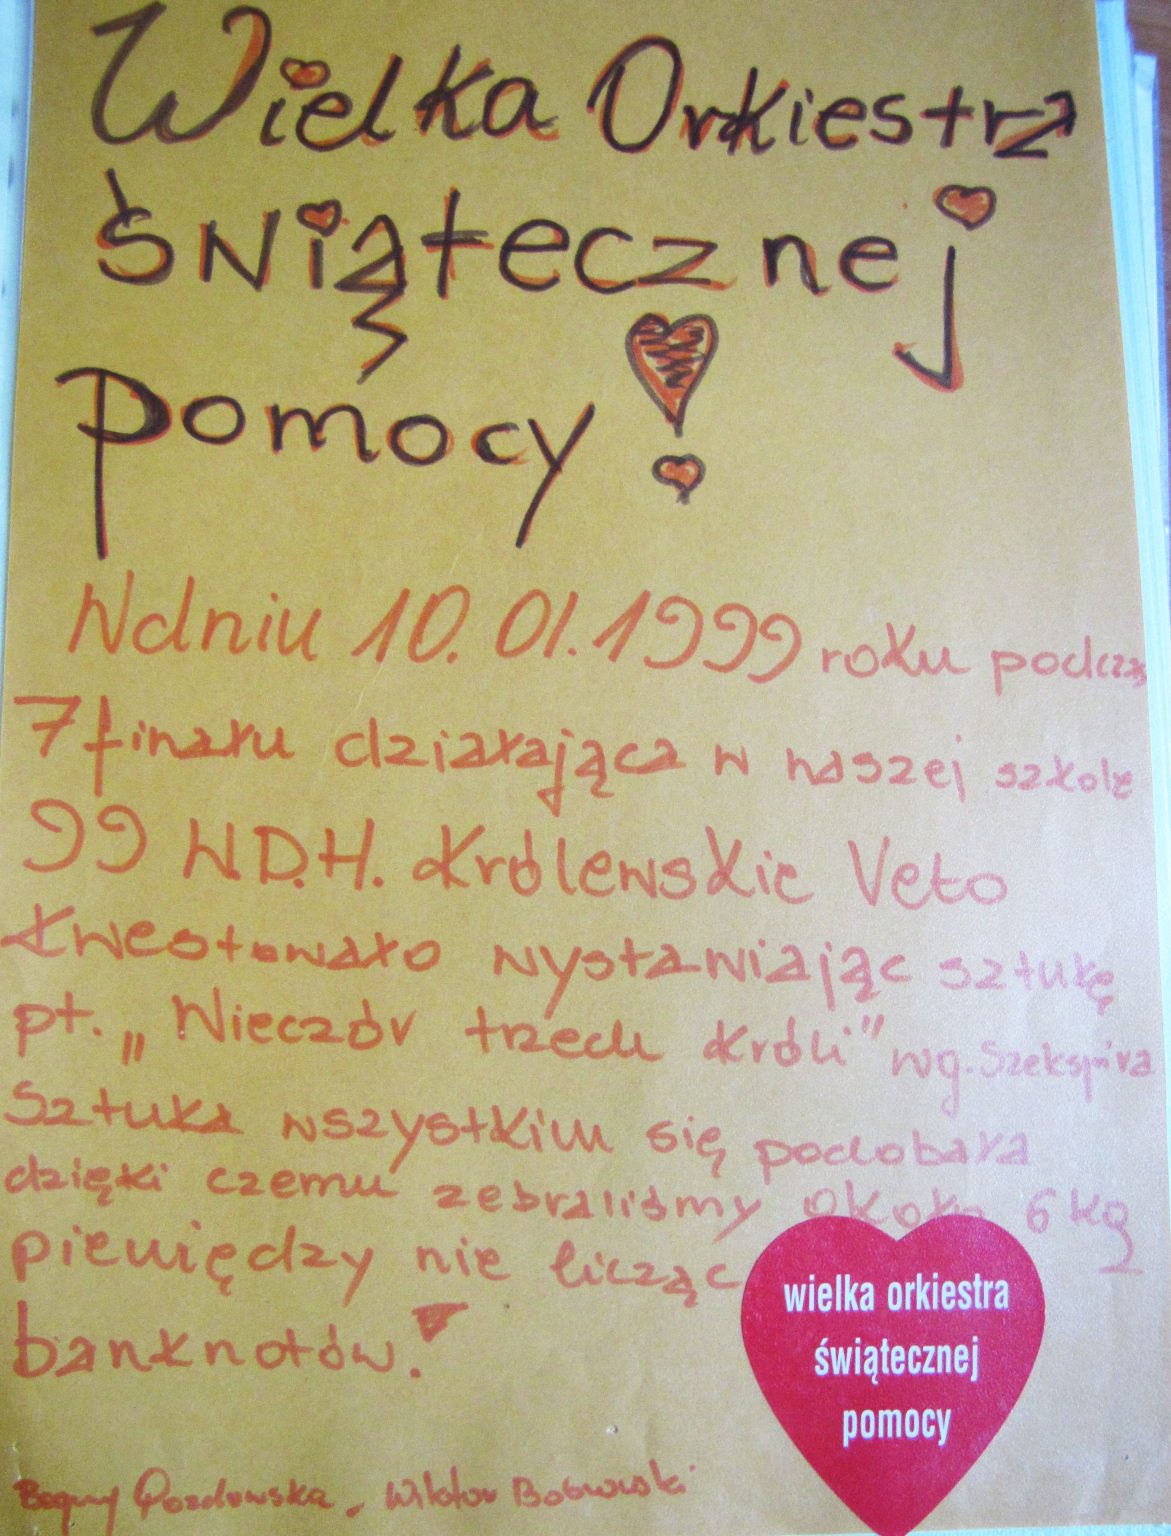 Wielka Orkiestra
Świątecznej
Pomocy!
W dniu 10.01.1999 roku podczas
7 finału działająca w naszej szkole
99 W.D.H. Królewskie Veto
kwestowało wystawiając sztukę
pt. „Wieczór trzech króli" wg. Szekspira
Sztuka wszystkim się podobała
dzięki czemu zebraliśmy około 6 kg
pieniędzy nie licząc
banknotów.
wielka orkiestra
świątecznej
pomocy
Wiktor